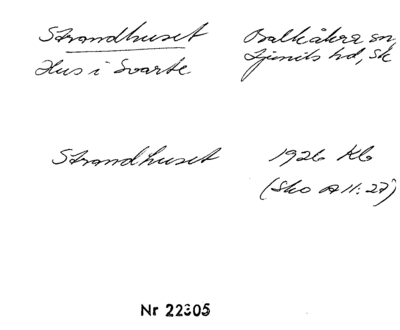 Strandhuset Balkåkra sn,
Hus i Svarte Ljunits hd, Sk
Strandhuset 1926 Kb
(Sko A11:27)
Nr 22305